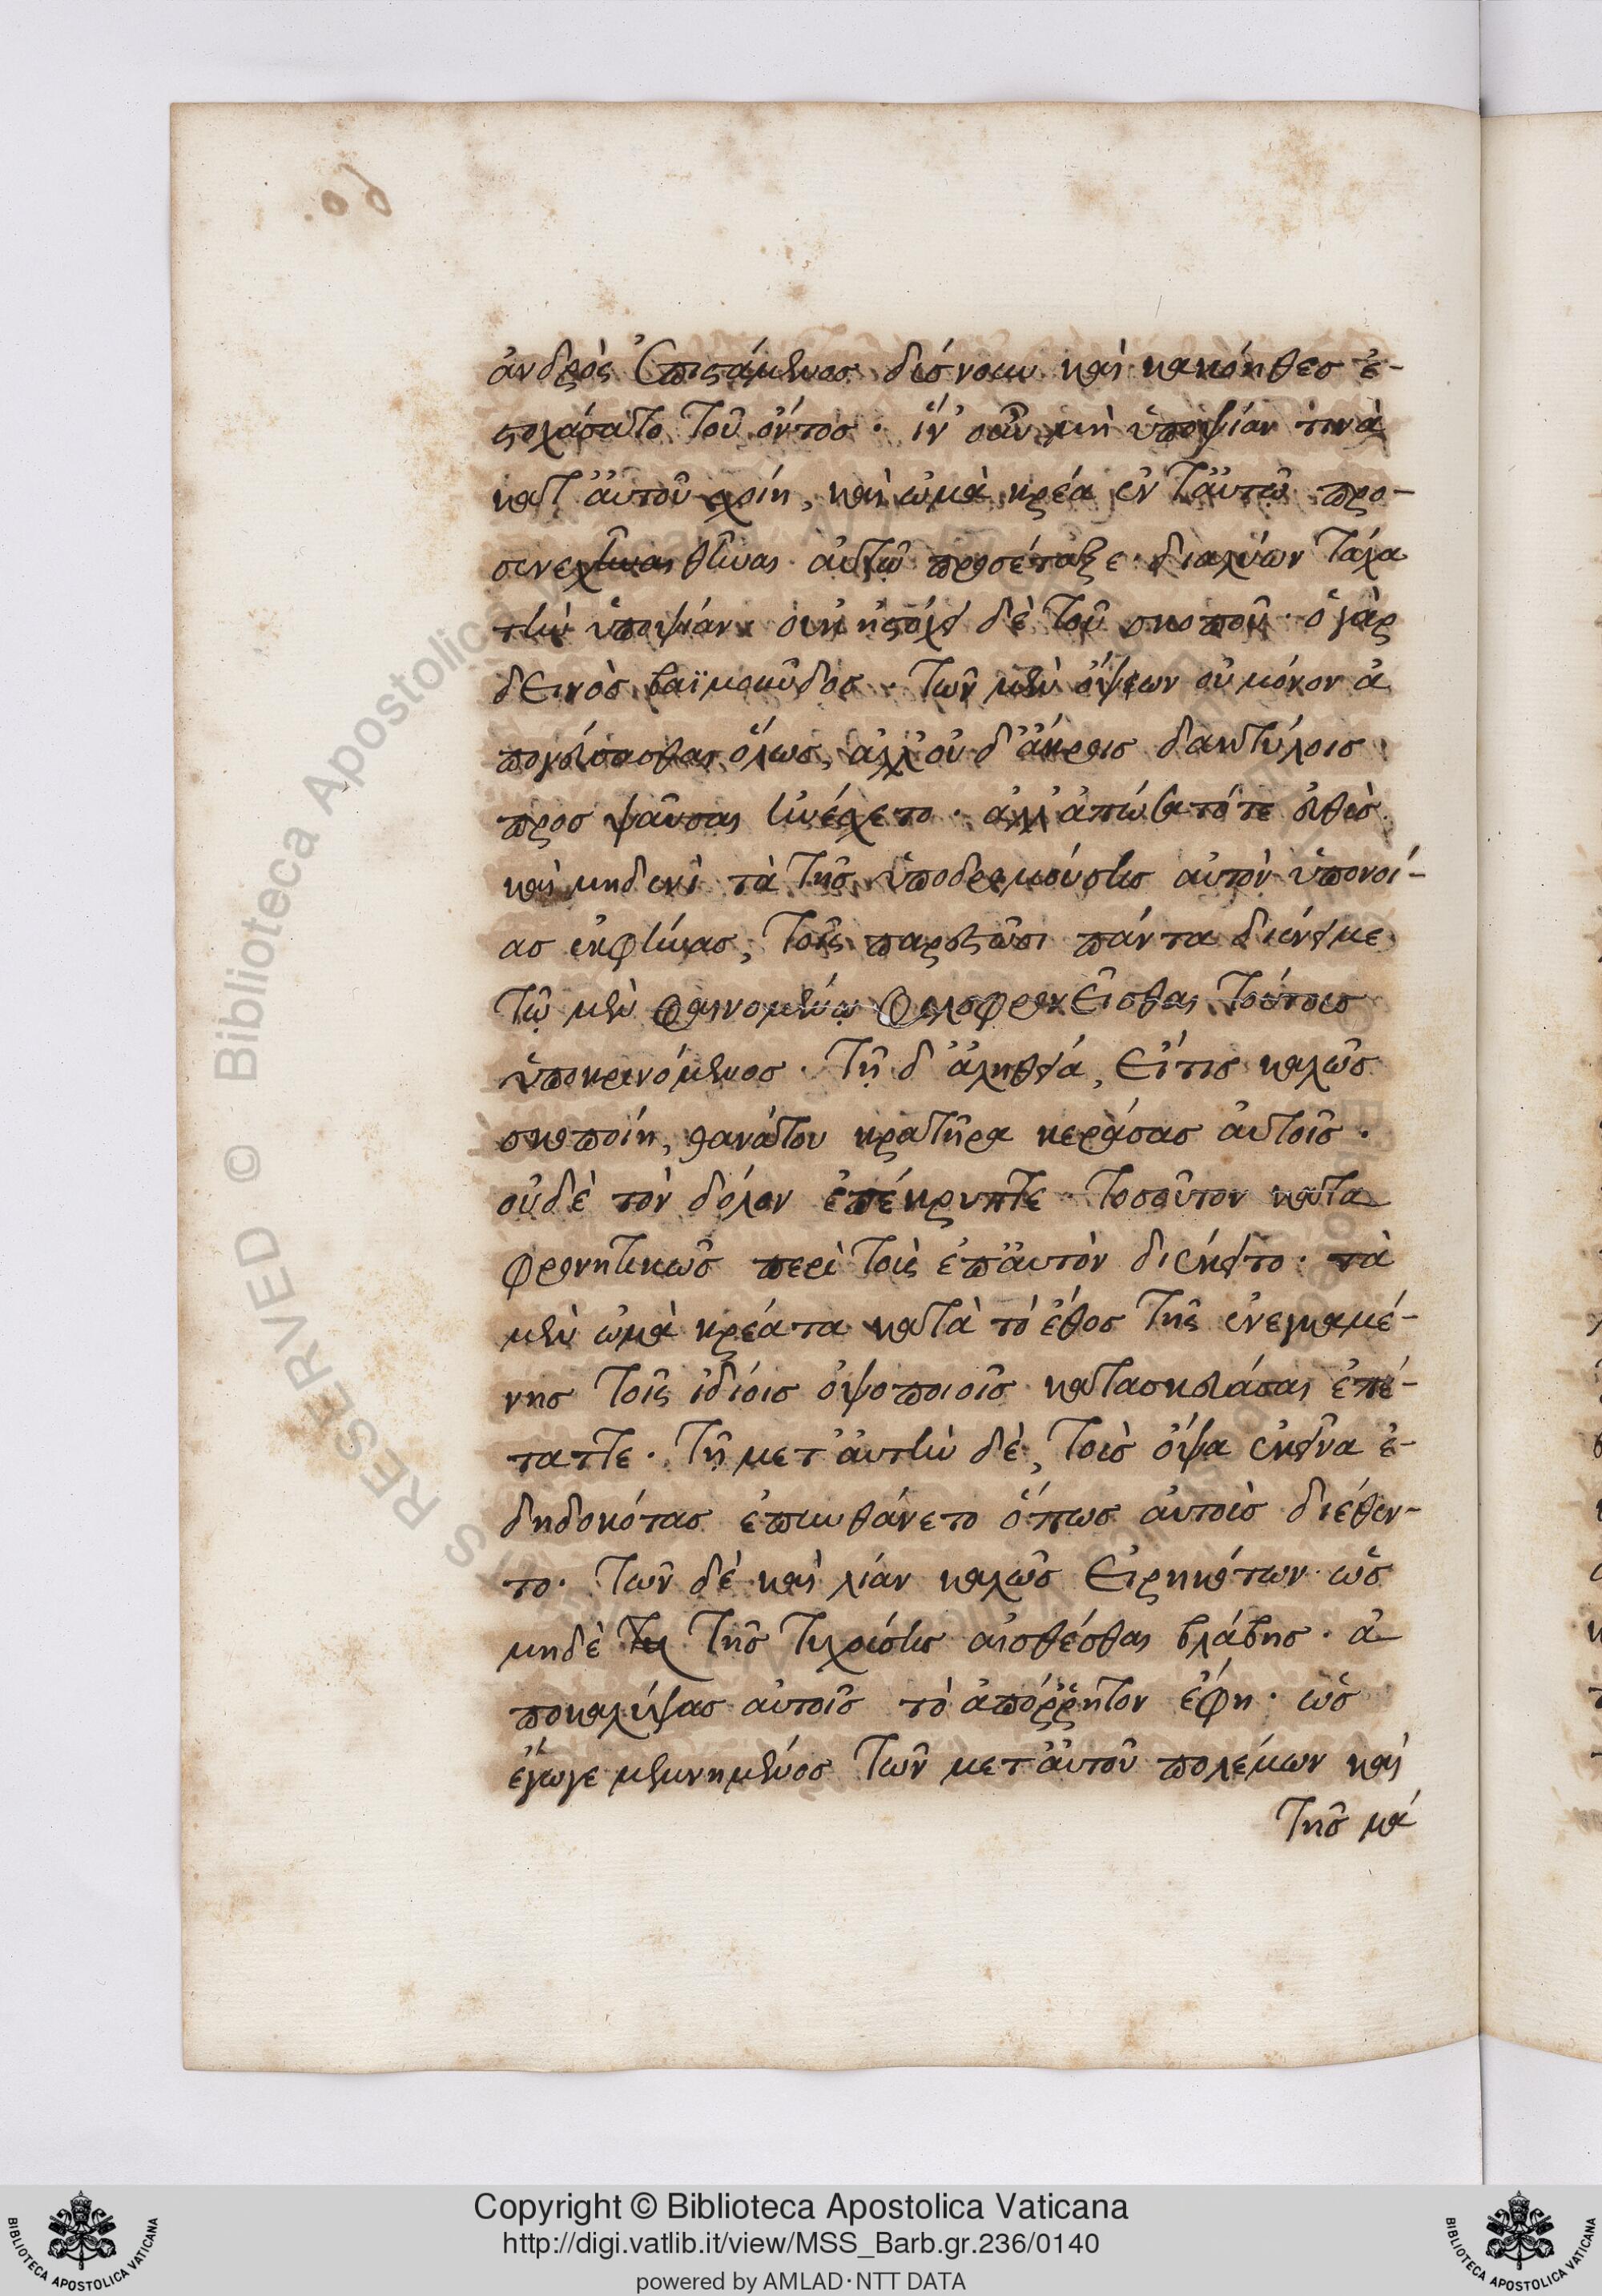 ἀνδρὸς ἐπιστάμενος δύσνουν καὶ κακόηθες ἐ-
στοχάσατο τοῦ ὄντος · ἵν' οὖν μὴ ὑποψίαν τινὰ
κατ' αὐτοῦ σχοίη, καὶ ὠμὰ κρέα ἐν ταὐτῷ προ-
σενεχθῆναι αὐτῷ προσέταξε · διαλύων τάχα
τὴν ὑποψίαν · οὐκ ἠστόχει δὲ τοῦ σκοποῦ · ὁ γὰρ
δεινὸς βαϊμοῦνδος · τῶν μὲν ὄψεων οὐ μόνον ἀ
πογεύσασθαι ὅλως, ἀλλ' οὐδ' ἄκροις δακτύλοις
προσψαῦσαι ἠνέσχετο · ἀλλ' ἀπώσατό τε εὐθὺς
καὶ μηδενὶ τὰ τῆς ὑποδραμούσης αὐτὸν ὑπονοί-
ας ἐκφήνας, τοῖς παρεστῶσι πάντα διένειμε
τῷ μὲν φαινομένῳ φιλοφρονεῖσθαι τούτοις
ὑποκρινόμενος · τῇ δ' ἀληθείᾳ, εἴ τις καλῶς
σκοποίη, θανάτου κρατῆρα κεράσας αὐτοῖς ·
οὐδὲ τὸν δόλον ἐπέκρυπτε · τοσοῦτον κατα
φρονητικῶς περὶ τοὺς ἐπ' αὐτὸν διέκειτο · τὰ
μὲν ὠμὰ κρέατα κατὰ τὸ ἔθος τῆς ἐνεγκαμέ-
νης τοῖς ἰδίοις ὀψοποιοῖς κατασκευάσαι ἐπέ-
ταττε · τῇ μετ' αὐτὴν δὲ, τοὺς ὄψα ἐκεῖνα ἐ-
δηδοκότας ἐπυνθάνετο ὅπως αὐτοὺς διέθεν-
το · τῶν δὲ καὶ λίαν καλῶς εἰρηκότων · ὡς
μηδὲ τῆς τυχούσης αἰσθέσθαι βλάβης · ἀ
ποκαλύψας αὐτοῖς τὸ ἀπόῤῥητον ἔφη · ὡς
ἔγωγε μεμνημένος τῶν μετ' αὐτοῦ πολέμων καὶ
τῆς μά
Copyright © Biblioteca Apostolica Vaticana
http://digi.vatlib.it/view/MSS_Barb.gr.236/0140
powered by AMLAD·NTT DATA
BIBLIOTECA APOSTOLICA VATICANA
BIBLIOTECA APOSTOLICA VATICANA